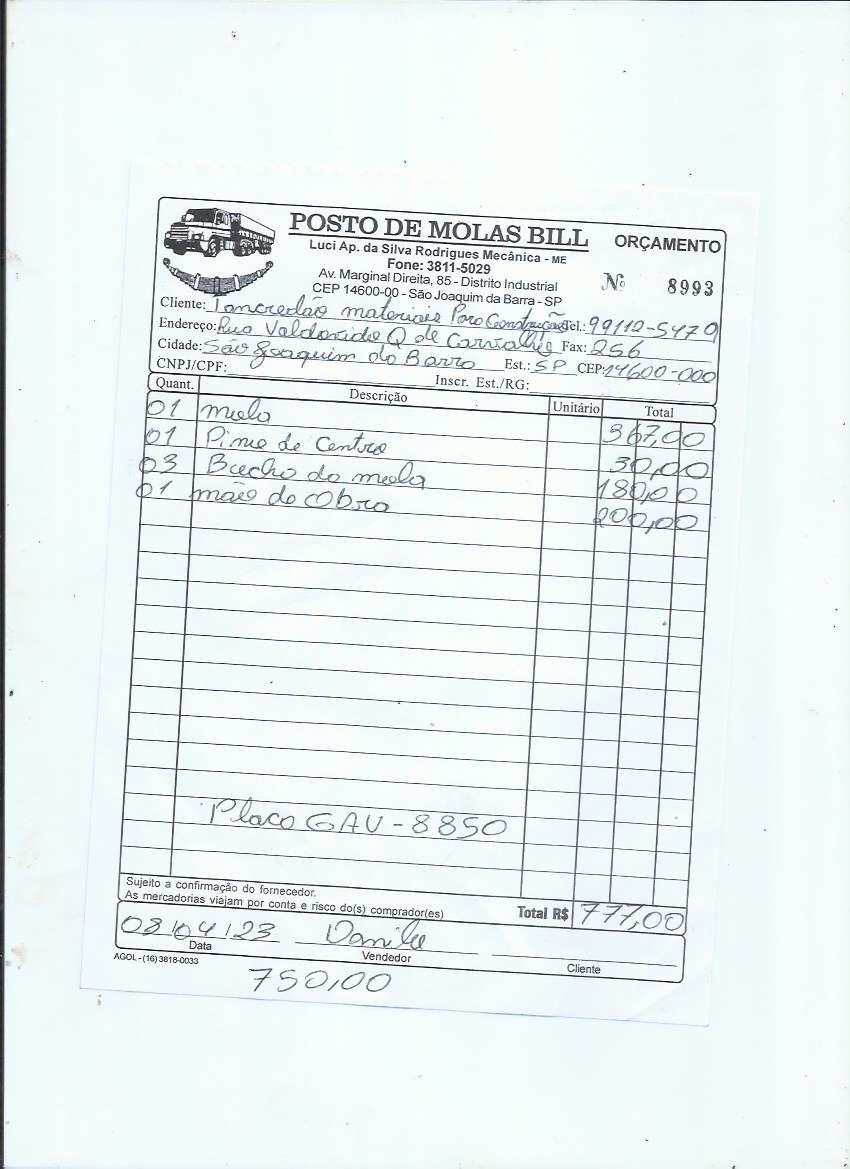 POSTO DE MOLAS BILL
ORÇAMENTO
Luci Ap. da Silva Rodrigues Mecânica - ME
Fone: 3811-5029
Av. Marginal Direita, 85 - Distrito Industrial
CEP 14600-00 - São Joaquim da Barra - SP
Nº 8993
Cliente: Tancredão materiais Para Construção Tel.: 99112-5479
Endereço: Rua Valdovido Q de Carvalho Fax: 256
Cidade: São Joaquim da Barra Est.: SP CEP: 14600-000
CNPJ/CPF: Inscr. Est./RG:
Quant. Descrição Unitário Total
01 mola 367,00
01 Pino de Centro 30,00
03 Bucha da mola 180,00
01 mão de Obra 200,00
Placa GAU - 8850
Sujeito a confirmação do fornecedor.
As mercadorias viajam por conta e risco do(s) comprador(es)
Total R$ 777,00
03/04/23 Danilo
Data Vendedor Cliente
AGOL - (16) 3818-0033
750,00